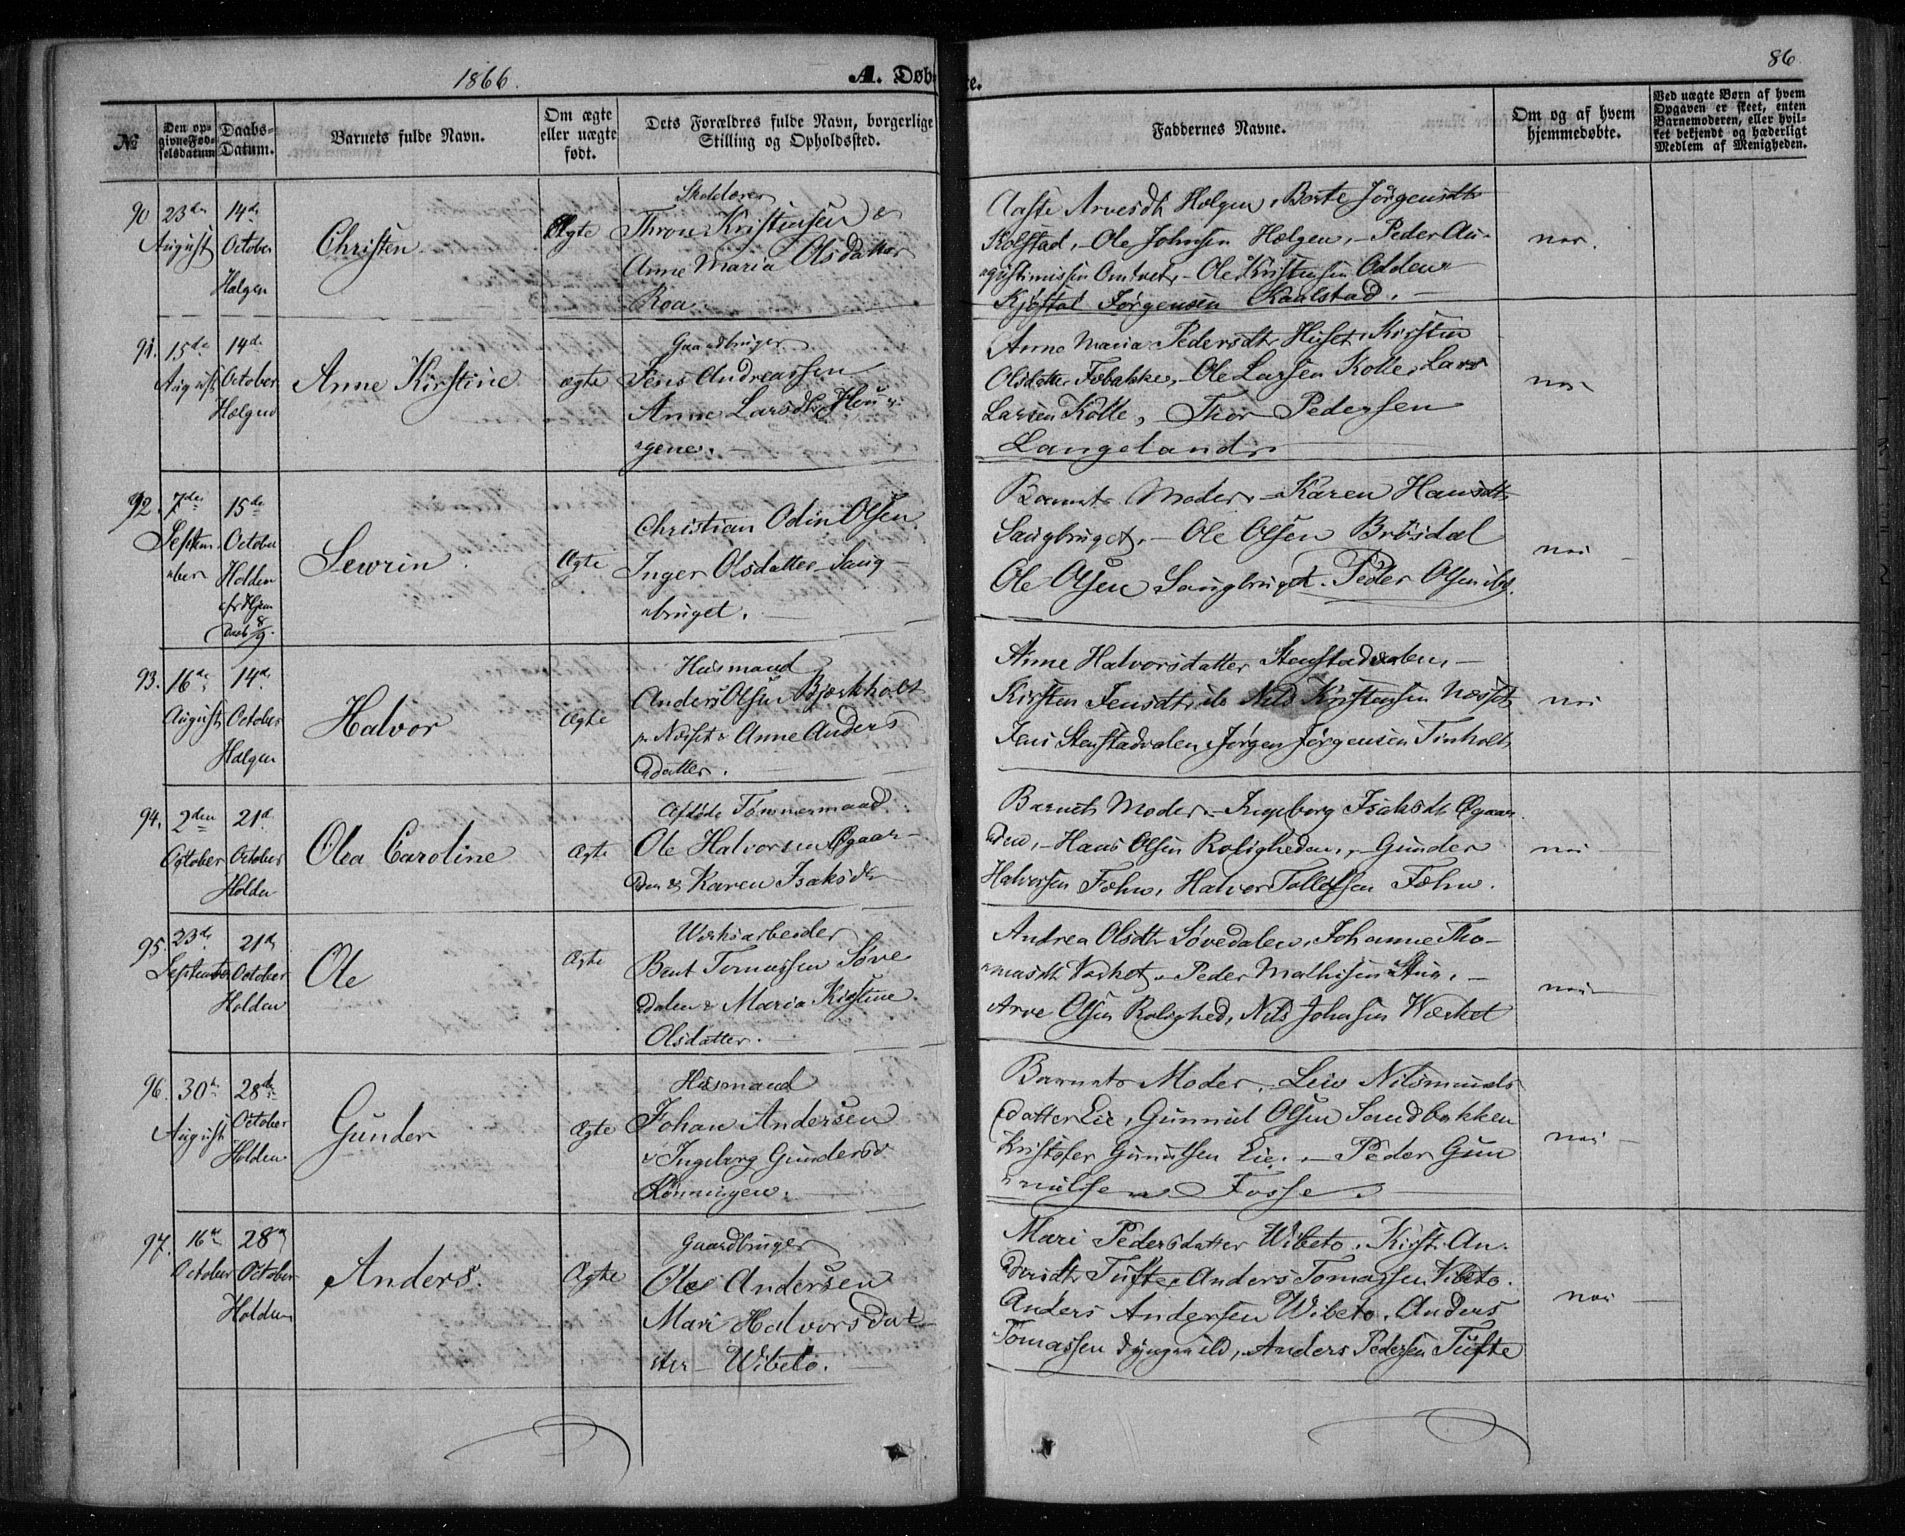 1866.
A. Døbte.
86
№
Den opgivne Fødselsdatum
Daabs-Datum.
Barnets fulde Navn.
Om ægte eller uægte født.
Dets Forældres fulde Navn, borgerlige Stilling og Opholdssted.
Faddernes Navne.
Om og af hvem hjemmedøbte.
Ved uægte Børn af hvem Opgaven er skeet, enten Barnemoderen, eller hvilket bekjendt og hæderligt Medlem af Menigheden.
90 23de August
14de October Hælgen
Christen
Ægte
Skolelærer
Thron Kristensen &
Anne Maria Olsdatter
Roa
Aaste Arvesdt Hælgen, Berte Jörgensdtr
Kolstad, Ole Johnsen Hælgen, Peder Au-
Ole Kristensen Odden
Jørgensen Kaalstad.
nei.
91. 15de August
14de October Hælgen
Anne Kirstine
ægte
Gaardbruger
Jens Andreassen
Anne Larsdtr Hou-
gene.
Anne Maria Pedersdtr Huset, Kirsten
Olsdatter Febakke, Ole Larsen Kolle, Lars
Larsen Kolle, Thor Pedersen
Langeland
nei
92. 7de September
15de October Holden
8/9.
Sewrin
Ægte
Christian Odin Olsen
Inger Olsdatter Saug-
bruget.
Barnets Moder, Karen Hansdtr
Saugbruget, Ole Olsen Brösdal
Ole Olsen Saugbruget. Peder Olsen ibd.
nei
93. 16de August
14de October Hælgen
Halvor
Ægte
Husmand
Anders Olsen Bjerkholt
p. Næsset & Anne Anders
datter.
Anne Halvorsdatter Stenstadvalen,
Kirsten Jensdtr ib Nils Kristensen Næsset
Jens Stenstadvalen Jørgen Jørgensen Tinholt
nei
94. 2den October
21de October Holden
Olea Caroline
Ægte
Afdøde Tømmermand
Ole Halvorsen Øgaar-
den & Karen Isaksdtr
Barnets Moder, Ingeborg Isaksdt Øgaar
den, Hans Olsen Roligheden, Gunder
Halvorsen Fæhn, Halvor Tollefsen Fæhn.
nei
95. 23de September
21de October Holden
Ole
Ægte
Værksarbeider
Bent Tomassen Søve
dalen & Maria Kirstine
Olsdatter.
Andrea Olsdtr Søvedalen, Johanne Tho-
masdt Værket, Peder Mathisen Stua,
Arve Olsen Rolighed, Nils Johnsen Værket
nei
96. 30te August
28de October Holden
Gunder
Ægte
Husmand
Johan Andersen
& Ingeborg Gundersd
Rönningen.
Barnets Moder, Liv Nilsmunds
datter Eie, Gunnul Olsen Sandbakken
Kristofer Gunulsen Eie, Peder Gun
nulsen Fosse.
nei
97. 16de October
28de October Holden
Anders.
Ægte
Gaardbruger
Ole Andersen
Mari Halvorsdat-
ter Wibeto.
Mari Pedersdatter Wibeto, Kirsti An-
dersdtr Tufte, Anders Tomassen Vibeto.
Anders Andersen Wibeto, Anders
Tomassen Anders Pedersen Tufte
nei